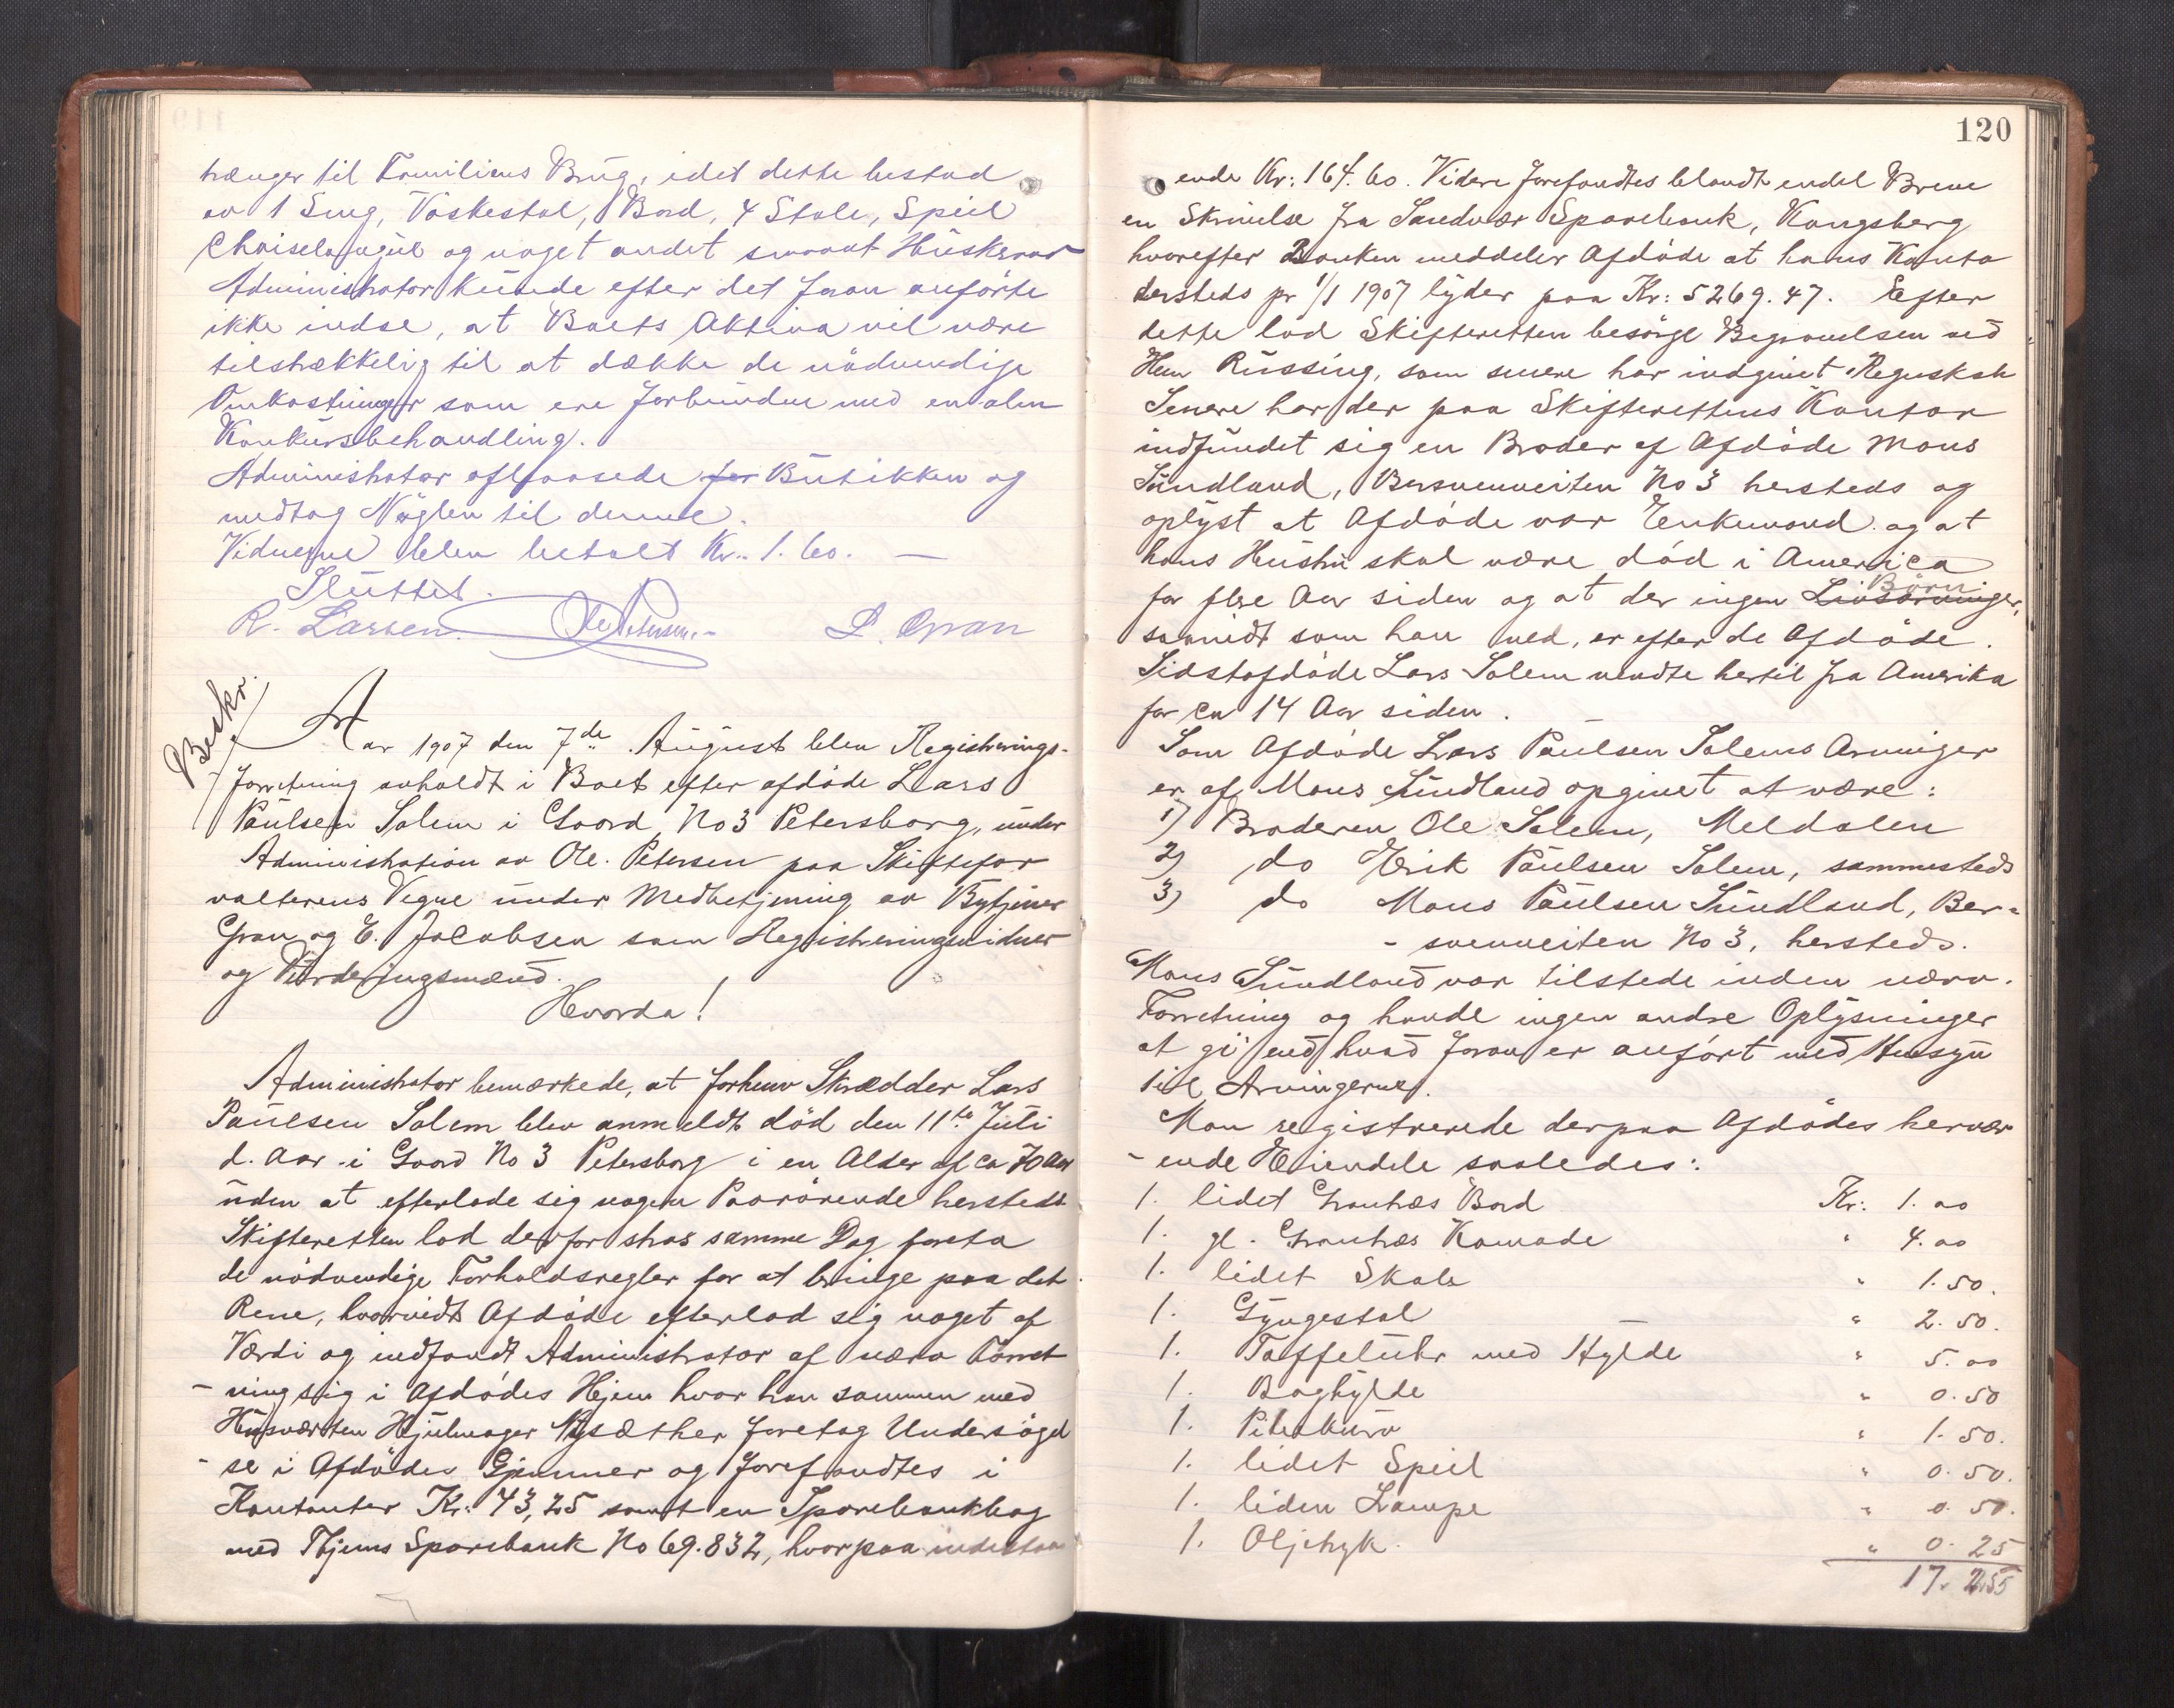 trænger til Familiens Brug, idet dette bestod
av 1 Seng, Vaskestol, Bord, 4 Stole, Speil
Chaiselongue og noget andet smaat Huskeraad
Administrator kunde efter det foran anførte
ikke indse, at Boets Aktiva vil være
tilstrækkelig til at dække de nödvendige
Omkostninger som ere forbunden med en alm
Konkursbehandling.
Administrator aflaasede for Butikken og
medtog Nöglen til denne.
Vidnerne blev betalt Kr. 1.60. —
Sluttet.
R. Larsen Ole Petersen.- L. Gran
Beskr.
Aar 1907 den 7de August blev Registrerings-
forretning avholdt i Boet efter afdöde Lars
Paulsen Solem i Gaard No 3 Petersborg, under
Administration av Ole. Petersen paa Skiftefor
valterens Vegne under Medbetjening av Byfjener
Gran og E. Jacobsen som Registreringsvidner
og Vurderingsmænd.
Hvorda!
Administrator bemærkede, at forhenv Skrædder Lars
Paulsen Solem blev anmeldt död den 11te Juli
d. Aar i Gaard No 3 Petersborg i en Alder af ca 70 Aar
uden at efterlade sig nogen Paarörende herstedt
Skifteretten lod derfor strax samme Dag foreta
de nödvendige Forholdsregler for at bringe paa det
Rene, hvorvidt Afdöde efterlod sig noget af
Værdi og indfandt Administrator af nærv Forret
- ning sig i Afdödes Hjem hvor han sammen med
Husværten Hjulmager Nysæther foretog Undersögel
- se i Afdödes Gjemmer og forefandtes i
Kontanter Kr: 43,25 samt en Sparebankbog
med Thjems Sparebank No 69.832, hvorpaa indestaa
120
ende Kr: 164.60. Videre forefandtes blandt endel Breve
en Skrivelse fra Sandsvær Sparebank, Kongsberg
hvorefter Banken meddeler Afdöde at hans Konto
dersteds pr 1/1 1907 lyder paa Kr: 5269.47. Efter
dette lod Skifteretten besörge Begravelsen ved
Herr Rüssing, som senere har indgivet Regnskab
Senere har der paa Skifterettens Kontor
indfundet sig en Broder af Afdöde Mons
Sundland, Bersvenveiten No 3 hersteds og
oplyst at Afdöde var Enkemand og at
hans Hustru skal være död i America
Börn
for flere Aar siden og at der ingen Livsarvinger,
saavidt som han ved, er efter de Afdöde.
Sidstafdöde Lars Solem vendte hertil fra Amerika
for ca 14 Aar siden.
Som Afdöde Lars Paulsen Solems Arvinger
er af Mons Sundland opgivet at være:
1) Broderen Ole Solem, Meldalen
2) do Erik Paulsen Solem, sammesteds
3) do Mons Paulsen Sundland, Ber-
- svenveiten No 3, hersteds.
Mons Sundland var tilstede under nærv.
Forretning og havde ingen andre Oplysninger
at gi end hvad foran er anfört med Hensyn
til Arvingerne.
Man registrerede derpaa Afdödes hervær
- ende Eiendele saaledes:
1. lidet Grantræs Bord Kr: 1. 00
1. gl. Grantræs Komode " 4. 00
1. lidet Skab " 1. 50.
1. Gyngestol " 2. 50.
1. Taffeluhr med Hylde " 5. 00
1. Boghylde " 0. 50
1. " 1. 50.
1. lidet Speil " 0. 50.
1. liden Lampe " 0. 50.
1. Oljetryk. " 0. 25
17.